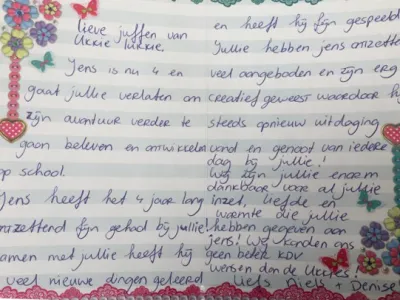 lieve juffen van
Ukkie Pukkie.
Jens is nu 4 en
gaat jullie verlaten om
zijn avontuur verder te
gaan beleven en ontwikkelen
op school.
Jens heeft het 4 jaar lang
ontzettend fijn gehad bij jullie!
samen met jullie heeft hij
veel nieuwe dingen geleerd
en heeft hij fijn gespeeld
Jullie hebben jens ontzettend
veel aangeboden en zijn erg
creatief geweest waardoor hij
steeds opnieuw uitdaging
vond en genoot van iedere
dag bij jullie!
Wij zijn jullie enorm
dankbaar voor al jullie
inzet, liefde en
warmte die jullie
hebben gegeven aan
jens! We konden ons
geen beter KDV
wensen dan de Ukkies!
Liefs Niels + Denise